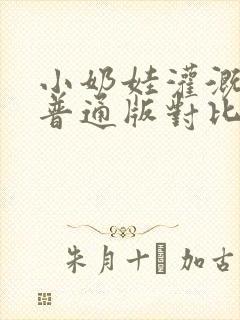 小奶娃灌溉
普通版對比
朱月十 加古